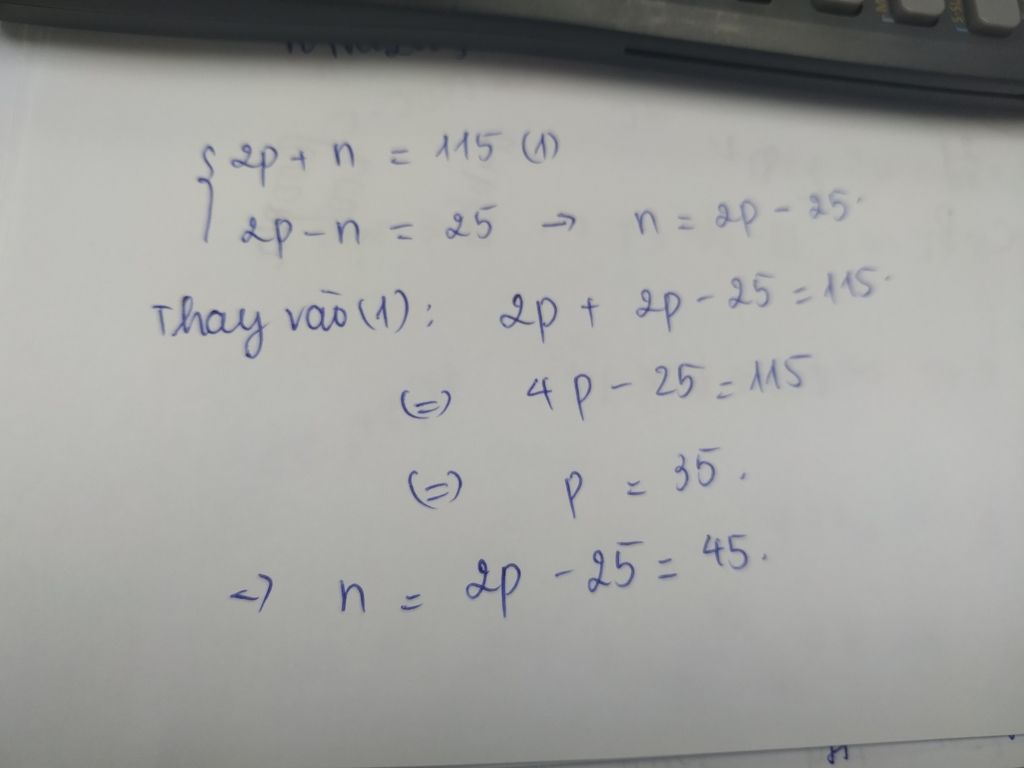 { 2p + n = 115 (1)
2p - n = 25 → n = 2p - 25.
Thay vào (1): 2p + 2p - 25 = 115.
(=) 4p - 25 = 115
(=) p = 35.
→ n = 2p - 25 = 45.